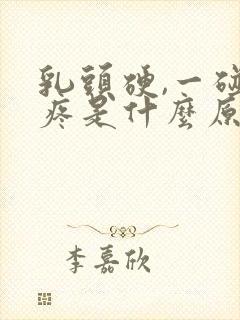 乳頭硬,一碰
疼是什麼原
李嘉欣